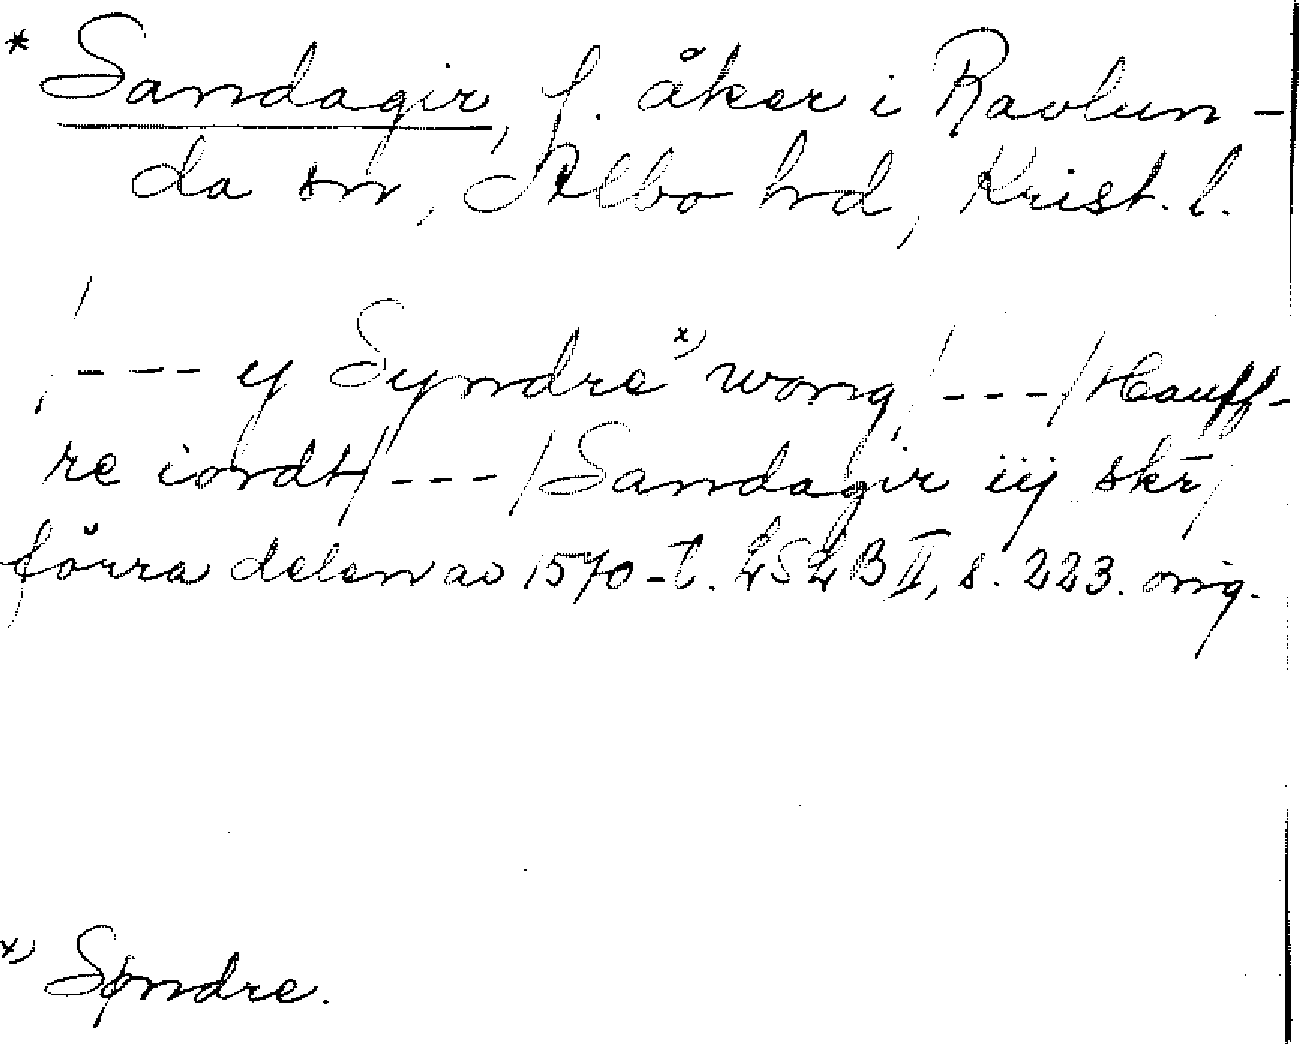 * Sandagir, f. åker i Ravlun-
da sn, Albo hd, Krist. l.
/--- y Syndre x) wong /---/ Hauff-
re iordt /---/ Sandagir iij skr̄/
förra delen av 1570-t. LSLB II, s. 223. orig.
x) Søndre.